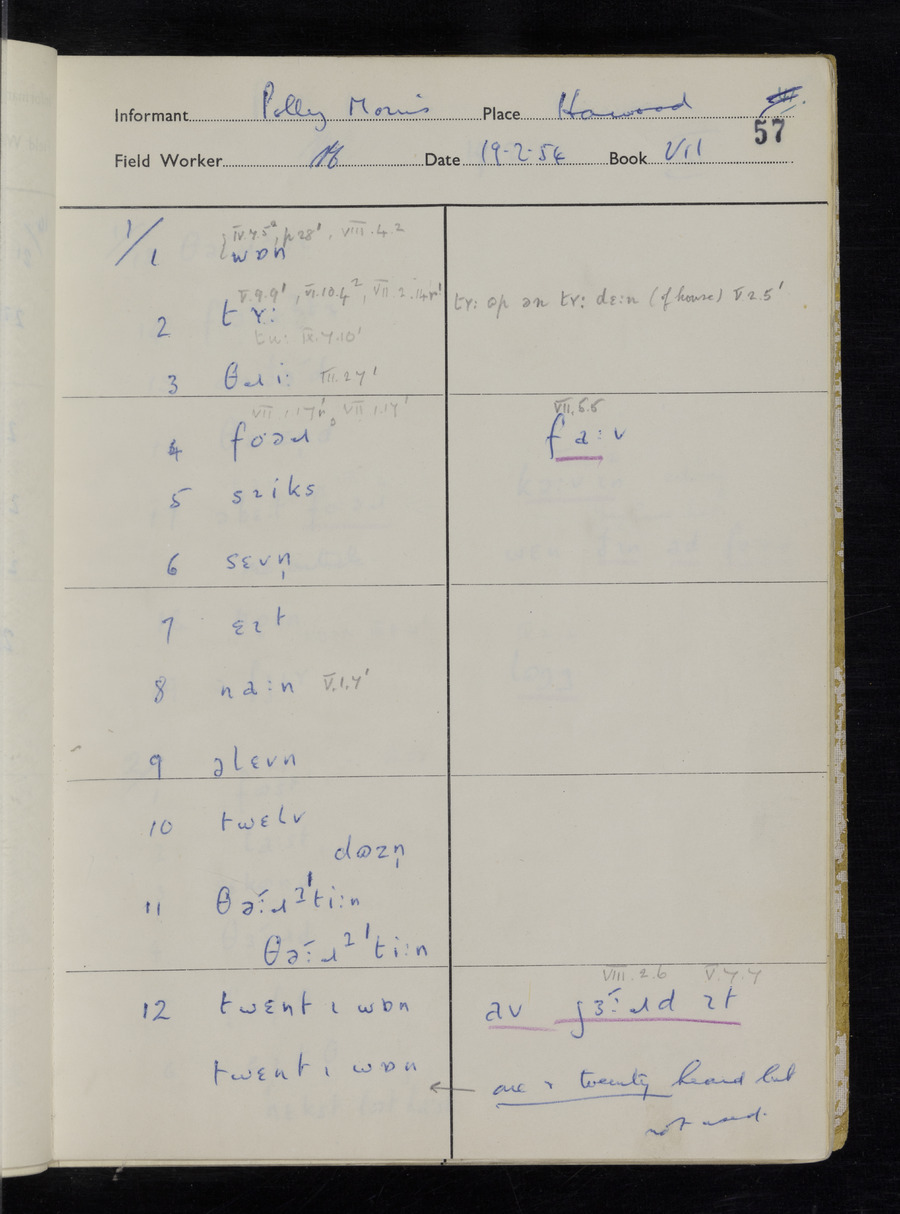 Informant Polly Morris Place Harwood
57
Field Worker Date 19-2-54 Book VII
1/1 wɒn
IV.7.5², p28', VIII.4.2
2 tʏ:
V.9.9', VI.10.4², VII.2.14r'
tu: IX.7.10'
tʏ: ɒp ən tʏ: dɛ:n (of house) V.2.5'
3 θɹi: III.2.7'
4 foəɹ
VII.1.17r, VII.1.17'
VII.5.5
fa:v
5 sɪks
6 sɛvn̩
7 ɛɪt
8 na:n V.1.7'
9 əlɛvn
10 twɛlv
dɷzn̩
11 θə:ɹ²'ti:n
θə:ɹ²'ti:n
12 twɛntɪ wɒn
VIII.2.6 V.7.7
av jɜ:ɹd ɪt
twɛntɪ wɒn
← one & twenty heard but
not used.